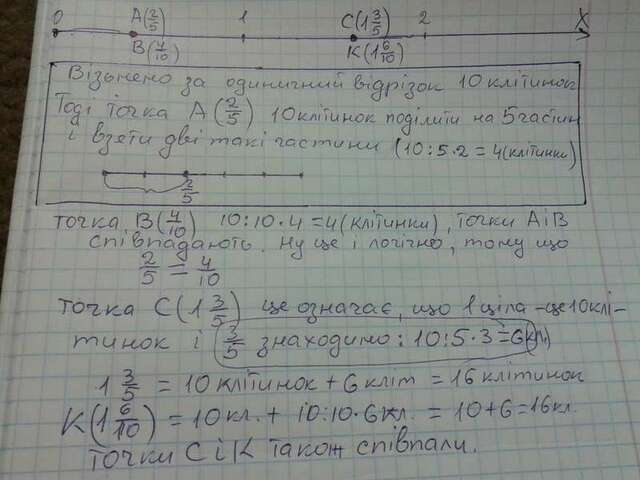 0 A(2/5) 1 C(1 3/5) 2 X
B(4/10) K(1 6/10)
Візьмемо за одиничний відрізок 10 клітинок
Тоді точка A(2/5) 10 клітинок поділити на 5 частин
і взяти дві такі частини (10:5·2=4(клітинки)
2/5
точка B(4/10) 10:10·4=4(клітинки), точки A і B
співпадають. Ну це і логічно, тому що
2/5 = 4/10
точка C(1 3/5) це означає, що 1 ціла - це 10 клі-
тинок і 3/5 знаходимо: 10:5·3=6кл)
1 3/5 = 10 клітинок + 6 кліт = 16 клітинок
K(1 6/10) = 10 кл. + 10:10·6 кл. = 10+6=16 кл.
точки C і K також співпали.